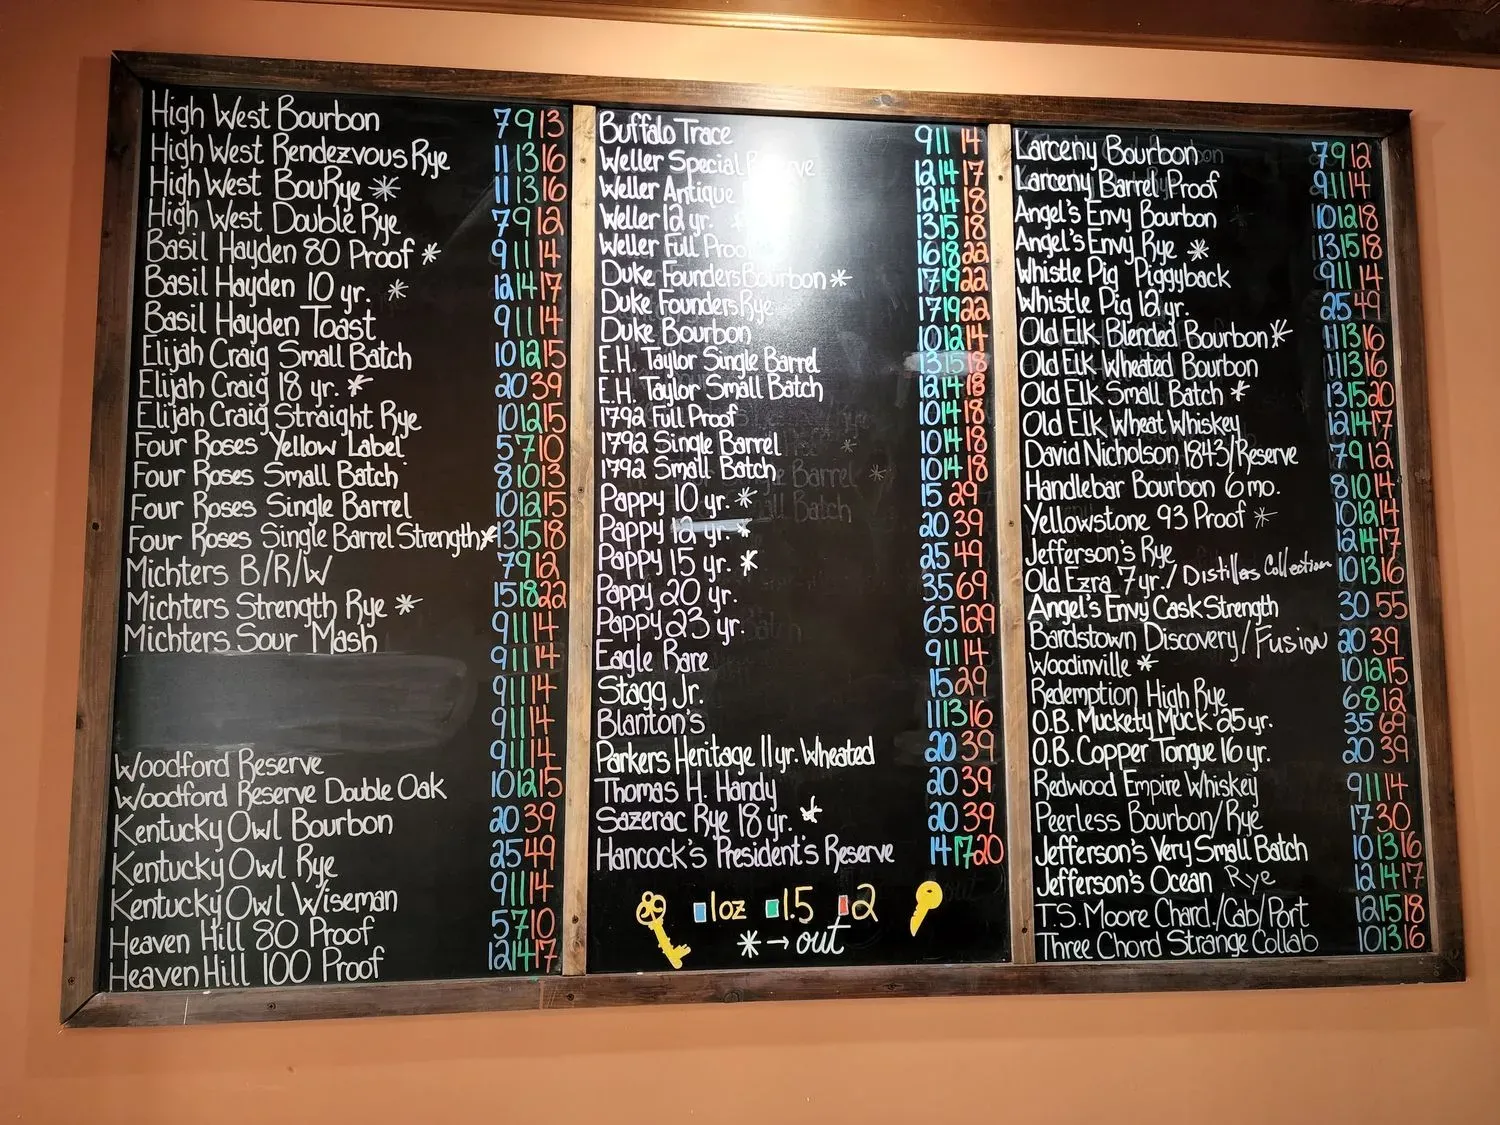 High West Bourbon 7 9 13
High West Rendezvous Rye 11 13 16
High West BouRye * 11 13 16
High West Double Rye 7 9 12
Basil Hayden 80 Proof * 9 11 14
Basil Hayden 10 yr. * 12 14 17
Basil Hayden Toast 9 11 14
Elijah Craig Small Batch 10 12 15
Elijah Craig 18 yr. * 20 39
Elijah Craig Straight Rye 10 12 15
Four Roses Yellow Label 5 7 10
Four Roses Small Batch 8 10 13
Four Roses Single Barrel 10 12 15
Four Roses Single Barrel Strength * 13 15 18
Michters B/R/W 7 9 12
Michters Strength Rye * 15 18 22
Michters Sour Mash 9 11 14
9 11 14
9 11 14
9 11 14
Woodford Reserve 9 11 14
Woodford Reserve Double Oak 10 12 15
Kentucky Owl Bourbon 20 39
Kentucky Owl Rye 25 49
Kentucky Owl Wiseman 9 11 14
Heaven Hill 80 Proof 5 7 10
Heaven Hill 100 Proof 12 14 17
Buffalo Trace 9 11 14
Weller Special Reserve 12 14 17
Weller Antique 12 14 18
Weller 12 yr. * 13 15 18
Weller Full Proof 16 18 22
Duke Founders Bourbon * 17 19 22
Duke Founders Rye 17 19 22
Duke Bourbon 10 12 14
E.H. Taylor Single Barrel 13 15 18
E.H. Taylor Small Batch 12 14 18
1792 Full Proof 10 14 18
1792 Single Barrel 10 14 18
1792 Small Batch 10 14 18
Pappy 10 yr. * 15 29
Pappy 12 yr. * 20 39
Pappy 15 yr. * 25 49
Pappy 20 yr. 35 69
Pappy 23 yr. 65 129
Eagle Rare 9 11 14
Stagg Jr. 15 29
Blanton's 11 13 16
Parkers Heritage 11 yr. Wheated 20 39
Thomas H. Handy 20 39
Sazerac Rye 18 yr. * 20 39
Hancock's President's Reserve 14 17 20
1oz 1.5 2
* → out
Larceny Bourbon 7 9 12
Larceny Barrel Proof 9 11 14
Angel's Envy Bourbon 10 12 18
Angel's Envy Rye * 13 15 18
Whistle Pig Piggyback 9 11 14
Whistle Pig 12 yr. 25 49
Old Elk Blended Bourbon * 11 13 16
Old Elk Wheated Bourbon 11 13 16
Old Elk Small Batch * 13 15 20
Old Elk Wheat Whiskey 12 14 17
David Nicholson 1843/Reserve 7 9 12
Handlebar Bourbon 6 mo. 8 10 14
Yellowstone 93 Proof * 10 12 14
Jefferson's Rye 12 14 17
Old Ezra 7 yr./ Distillers Collection 10 13 16
Angel's Envy Cask Strength 30 55
Bardstown Discovery/Fusion 20 39
Woodinville * 10 12 15
Redemption High Rye 6 8 12
O.B. Muckety Muck 25 yr. 35 69
O.B. Copper Tongue 16 yr. 20 39
Redwood Empire Whiskey 9 11 14
Peerless Bourbon/Rye 17 30
Jefferson's Very Small Batch 10 13 16
Jefferson's Ocean Rye 12 14 17
T.S. Moore Chard./Cab/Port 12 15 18
Three Chord Strange Collab 10 13 16